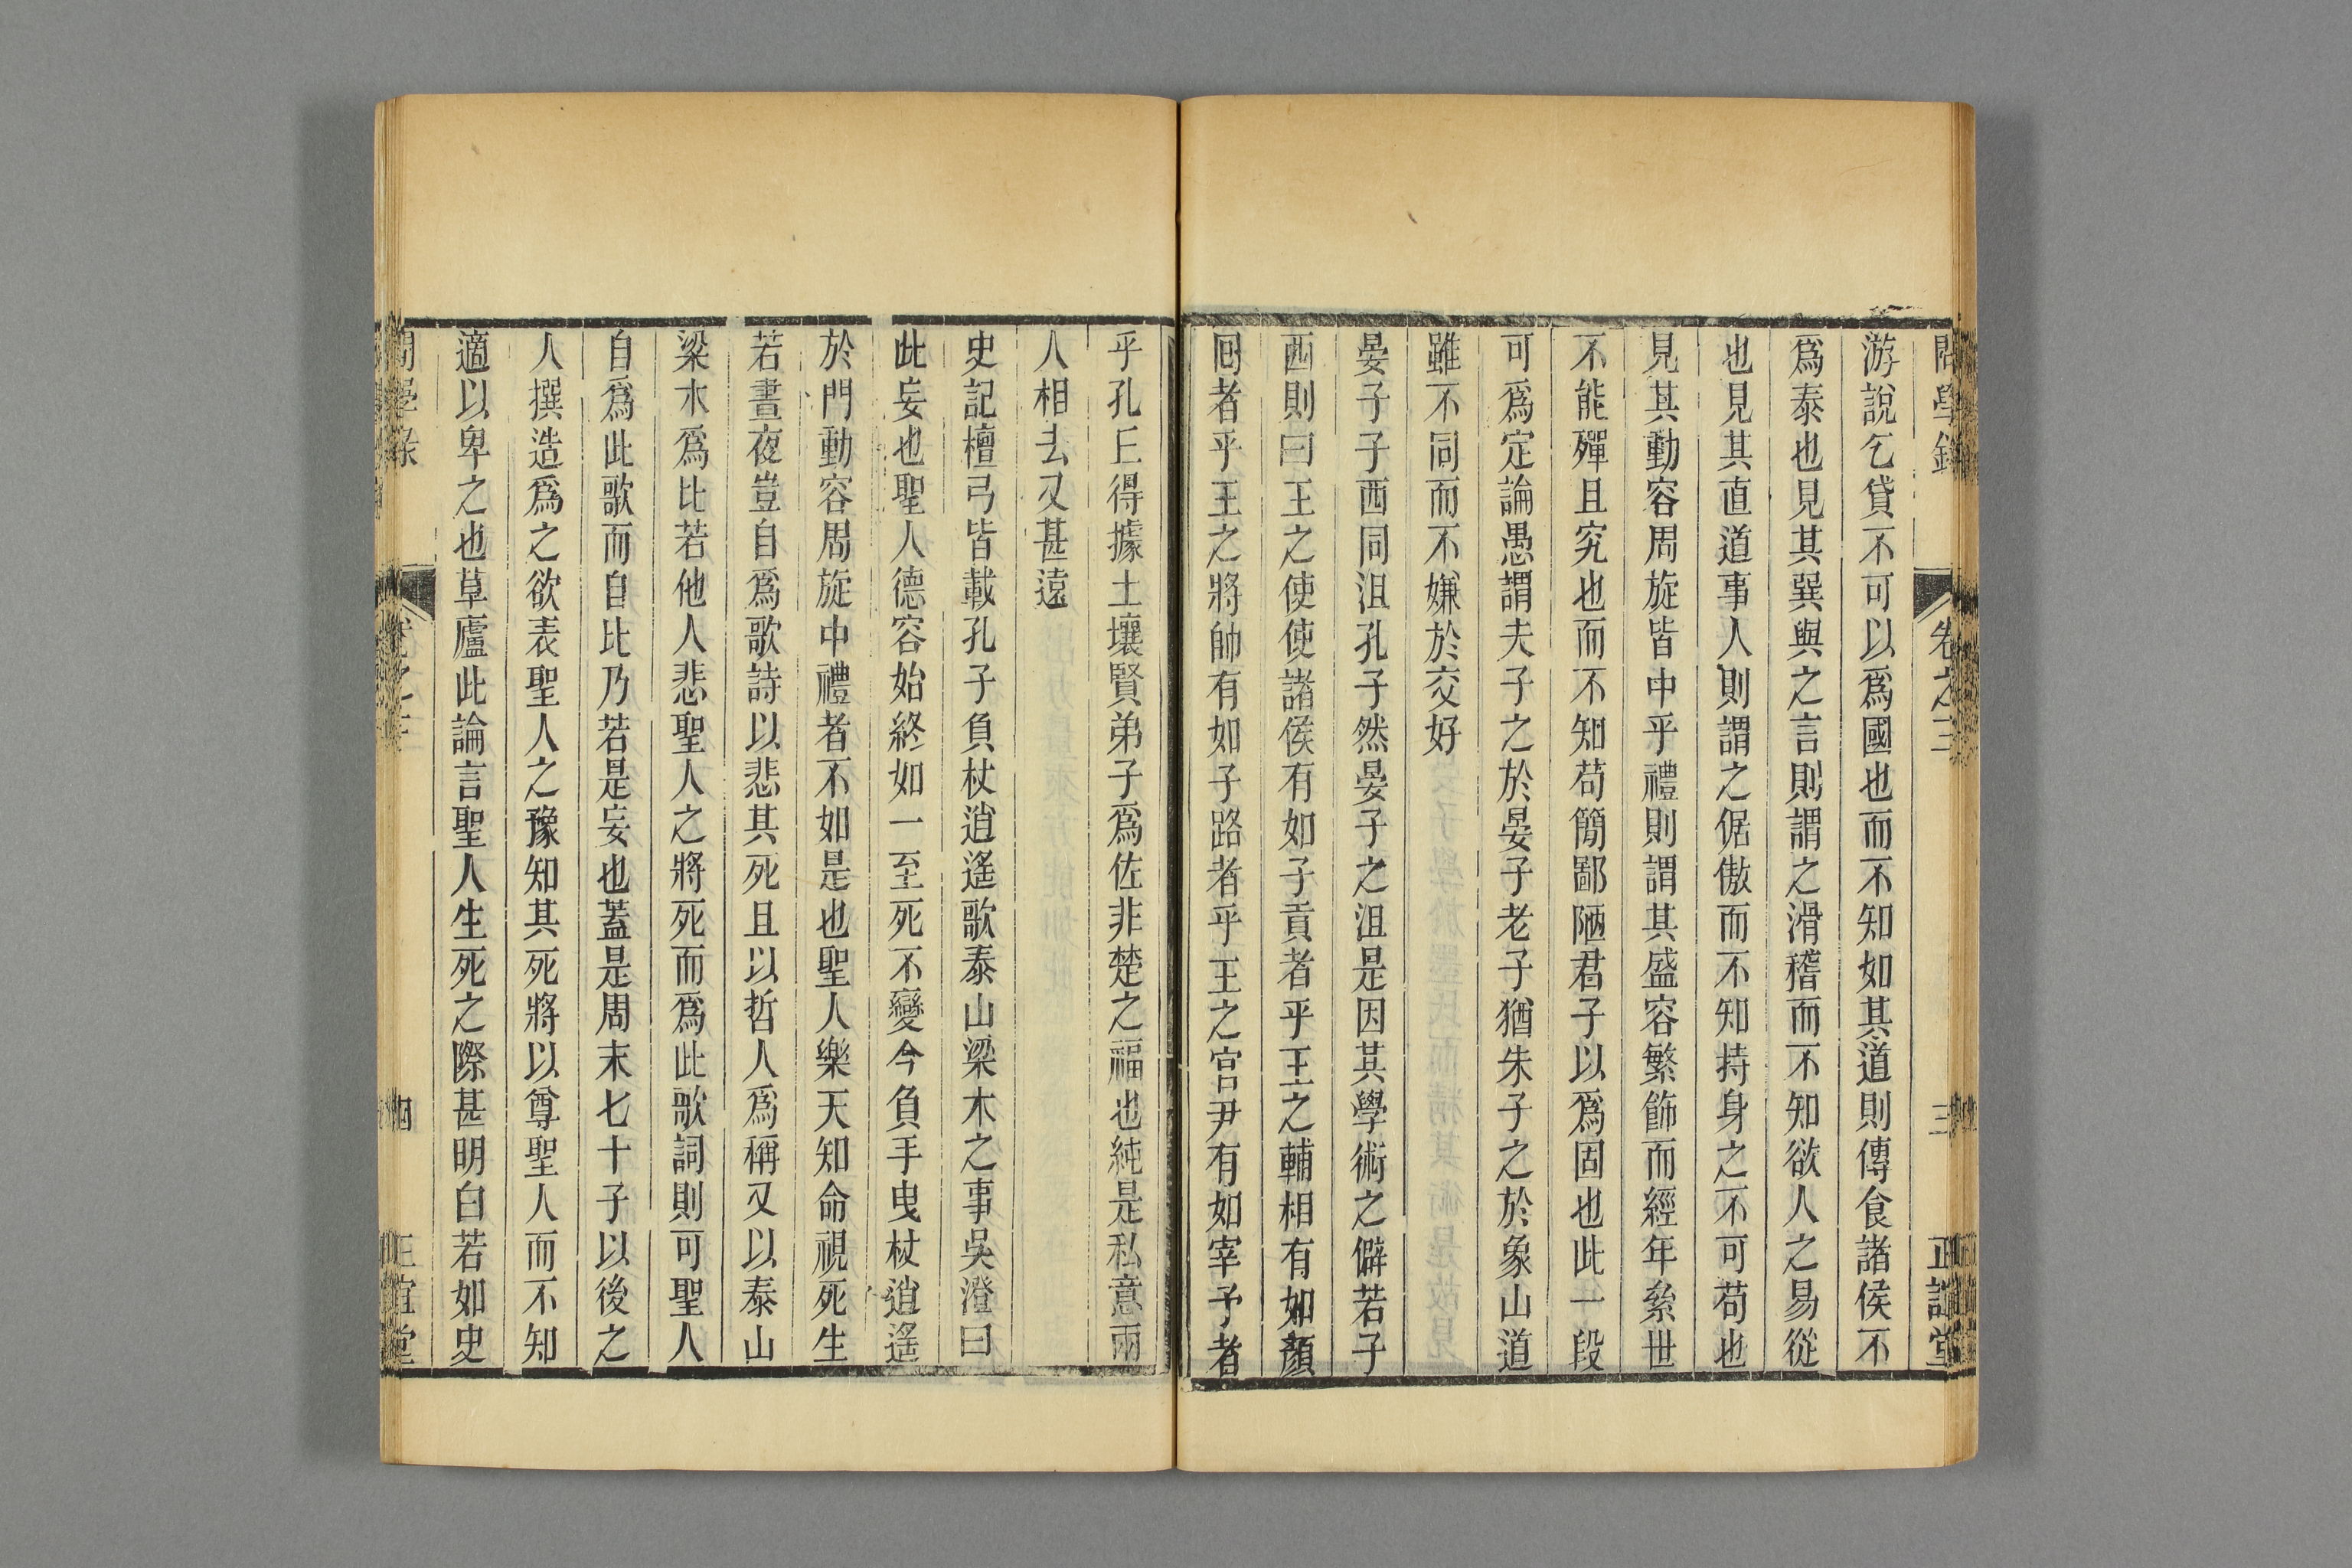 問學錄 卷之三 三 正誼堂
游說乞貸不可以爲國也而不知如其道則傳食諸侯不
爲泰也見其巽與之言則謂之滑稽而不知欲人之易從
也見其直道事人則謂之倨傲而不知持身之不可苟也
見其動容周旋皆中乎禮則謂其盛容繁飾而經年絫世
不能殫且究也而不知苟簡鄙陋君子以爲固也此一段
可爲定論愚謂夫子之於晏子老子猶朱子之於象山道
雖不同而不嫌於交好
晏子子西同沮孔子然晏子之沮是因其學術之僻若子
西則曰王之使使諸侯有如子貢者乎王之輔相有如顏
囘者乎王之將帥有如子路者乎王之宮尹有如宰予者
乎孔丘得據土壤賢弟子爲佐非楚之福也純是私意兩
人相去又甚遠
史記檀弓皆載孔子負杖逍遙歌泰山梁木之事吳澄曰
此妄也聖人德容始終如一至死不變今負手曳杖逍遙
於門動容周旋中禮者不如是也聖人樂天知命視死生
若晝夜豈自爲歌詩以悲其死且以哲人爲稱又以泰山
梁木爲比若他人悲聖人之將死而爲此歌詞則可聖人
自爲此歌而自比乃若是妄也蓋是周末七十子以後之
人撰造爲之欲表聖人之豫知其死將以尊聖人而不知
適以卑之也草廬此論言聖人生死之際甚明白若如史
問學錄 卷之三 四 正誼堂